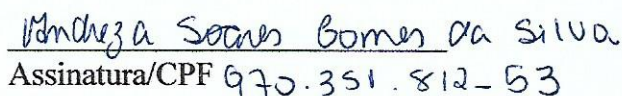 Andreza Soares Gomes da Silva
Assinatura/CPF 970.351.812-53